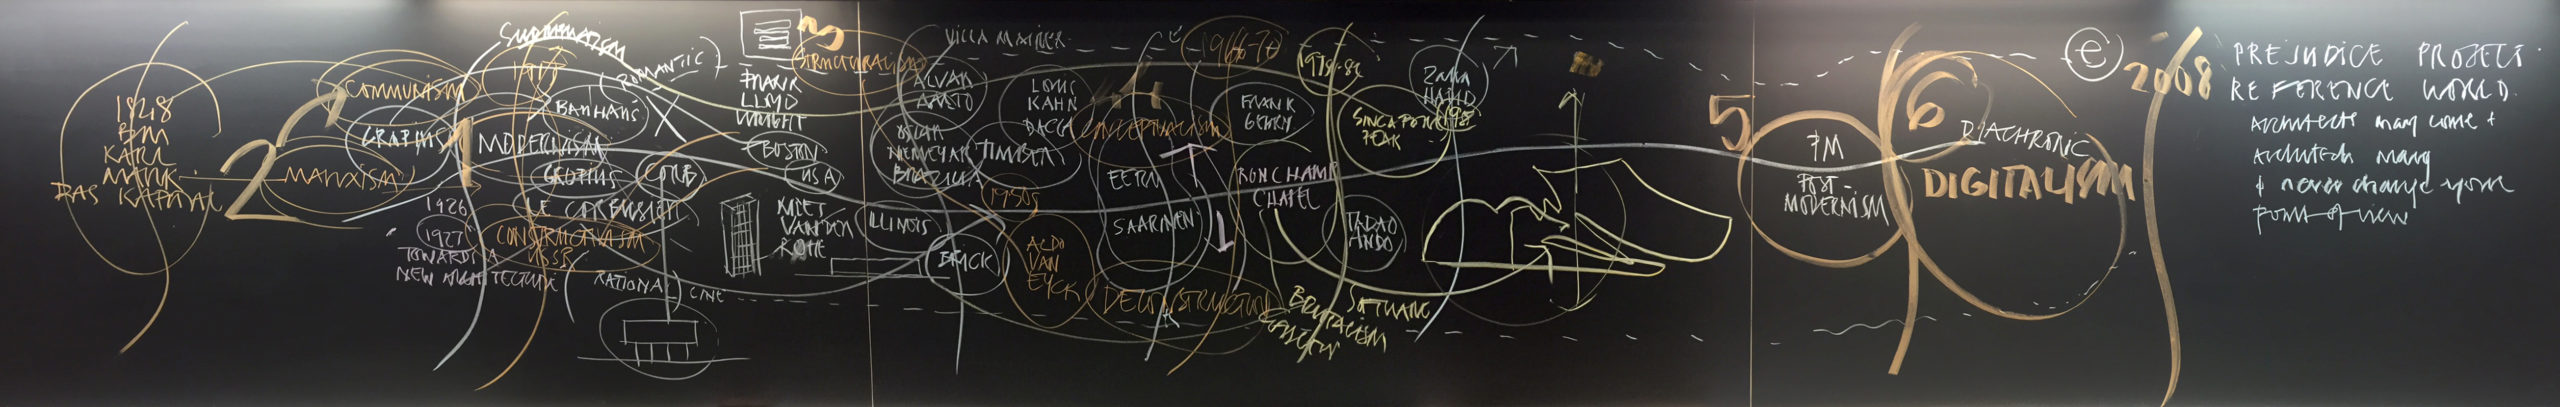 1848
KARL
MARX
DAS KAPITAL
2
COMMUNISM
GRAPHUS
MARXISM
1
1926
1927
TOWARDS A
NEW ARCHITECTURE
SUPREMATISM
1917
(ROMANTIC)
BAUHAUS
MODERNISM
GROPIUS
CORB
LE CORBUSIER
CONSTRUCTIVISM
USSR
(RATIONAL)
3
STRUCTURALISM
FRANK
LLOYD
WRIGHT
BOSTON
USA
MIES
VAN DER
ROHE
ILLINOIS
BRICK
VILLA MAIREA
ALVAR
AALTO
OSCAR
NIEMEYAR
BRAZILIA
LOUIS
KAHN
DACCA
TIMBER
1950s
ALDO
VAN
EYCK
4
CONCEPTUALISM
EERU
SAARINEN
DECONSTRUCTION
1966-70
FRANK
GEHRY
RONCHAMP
CHAPEL
1978-82
SINGAPORE
PEAK
TADAO
ANDO
BRUTALISM
SOFTWARE
ZAHA
HADID
5
PM
POST-
MODERNISM
6
DIACHRONIC
DIGITALISM
e
2008
PREJUDICE PROJECT
REFERENCE WORLD.
Architects may come +
Architects may
& never change your
point of view